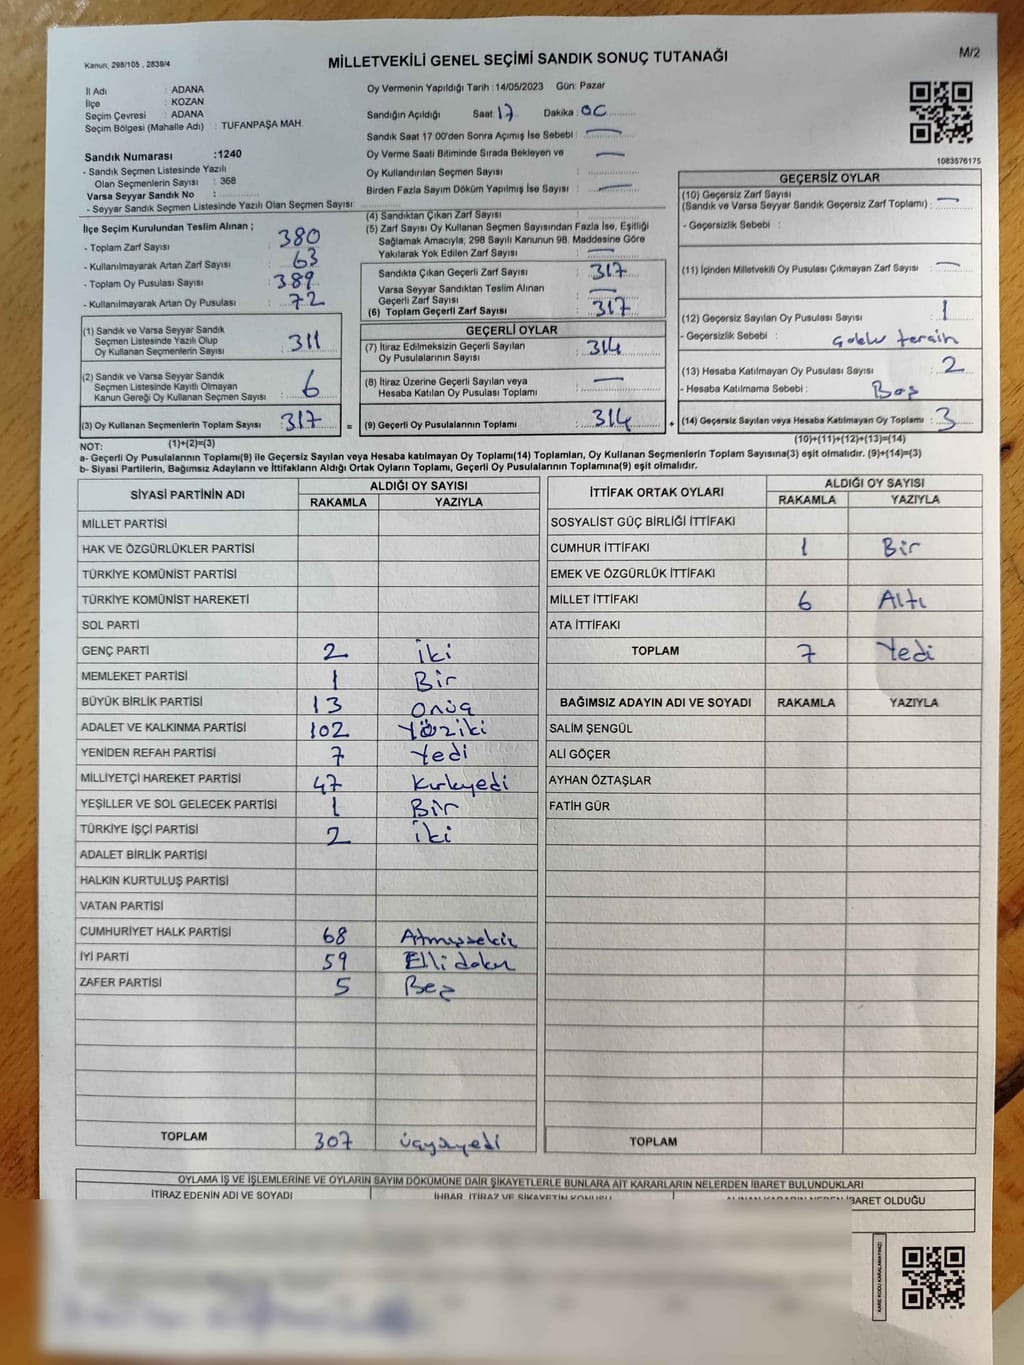 Kanun, 298/105 , 2839/4
MİLLETVEKİLİ GENEL SEÇİMİ SANDIK SONUÇ TUTANAĞI
M/2
İl Adı : ADANA
İlçe : KOZAN
Seçim Çevresi : ADANA
Seçim Bölgesi (Mahalle Adı) : TUFANPAŞA MAH.
Sandık Numarası :1240
- Sandık Seçmen Listesinde Yazılı
Olan Seçmenlerin Sayısı : 368
Varsa Seyyar Sandık No :
- Seyyar Sandık Seçmen Listesinde Yazılı Olan Seçmen Sayısı:
Oy Vermenin Yapıldığı Tarih :14/05/2023 Gün: Pazar
Sandığın Açıldığı Saat:17 Dakika:00
Sandık Saat 17.00'den Sonra Açılmış İse Sebebi : —
Oy Verme Saati Bitiminde Sırada Bekleyen ve —
Oy Kullandırılan Seçmen Sayısı :
Birden Fazla Sayım Döküm Yapılmış İse Sayısı : —
1083576175
İlçe Seçim Kurulundan Teslim Alınan ;
- Toplam Zarf Sayısı : 380
- Kullanılmayarak Artan Zarf Sayısı : 63
- Toplam Oy Pusulası Sayısı : 389
- Kullanılmayarak Artan Oy Pusulası : 72
(1) Sandık ve Varsa Seyyar Sandık
Seçmen Listesinde Yazılı Olup
Oy Kullanan Seçmenlerin Sayısı : 311
(2) Sandık ve Varsa Seyyar Sandık
Seçmen Listesinde Kayıtlı Olmayan
Kanun Gereği Oy Kullanan Seçmen Sayısı : 6
(3) Oy Kullanan Seçmenlerin Toplam Sayısı : 317 =
(4) Sandıktan Çıkan Zarf Sayısı :
(5) Zarf Sayısı Oy Kullanan Seçmen Sayısından Fazla İse, Eşitliği
Sağlamak Amacıyla; 298 Sayılı Kanunun 98. Maddesine Göre
Yakılarak Yok Edilen Zarf Sayısı : —
Sandıkta Çıkan Geçerli Zarf Sayısı : 317
Varsa Seyyar Sandıktan Teslim Alınan
Geçerli Zarf Sayısı : —
(6) Toplam Geçerli Zarf Sayısı : 317
GEÇERLİ OYLAR
(7) İtiraz Edilmeksizin Geçerli Sayılan
Oy Pusulalarının Sayısı : 314
(8) İtiraz Üzerine Geçerli Sayılan veya
Hesaba Katılan Oy Pusulaları Toplamı : —
(9) Geçerli Oy Pusulalarının Toplamı : 314 +
GEÇERSİZ OYLAR
(10) Geçersiz Zarf Sayısı
(Sandık ve Varsa Seyyar Sandık Geçersiz Zarf Toplamı) : —
- Geçersizlik Sebebi :
(11) İçinden Milletvekili Oy Pusulası Çıkmayan Zarf Sayısı : —
(12) Geçersiz Sayılan Oy Pusulası Sayısı : 1
- Geçersizlik Sebebi : tercih
(13) Hesaba Katılmayan Oy Pusulası Sayısı : 2
- Hesaba Katılmama Sebebi : Boş
(14) Geçersiz Sayılan veya Hesaba Katılmayan Oy Toplamı : 3
NOT: (1)+(2)=(3) (10)+(11)+(12)+(13)=(14)
a- Geçerli Oy Pusulalarının Toplamı(9) ile Geçersiz Sayılan veya Hesaba katılmayan Oy Toplamı(14) Toplamları, Oy Kullanan Seçmenlerin Toplam Sayısına(3) eşit olmalıdır. (9)+(14)=(3)
b- Siyasi Partilerin, Bağımsız Adayların ve İttifakların Aldığı Ortak Oyların Toplamı, Geçerli Oy Pusulalarının Toplamına(9) eşit olmalıdır.
SİYASİ PARTİNİN ADI ALDIĞI OY SAYISI
RAKAMLA YAZIYLA
MİLLET PARTİSİ
HAK VE ÖZGÜRLÜKLER PARTİSİ
TÜRKİYE KOMÜNİST PARTİSİ
TÜRKİYE KOMÜNİST HAREKETİ
SOL PARTİ
GENÇ PARTİ 2 iki
MEMLEKET PARTİSİ 1 Bir
BÜYÜK BİRLİK PARTİSİ 13 onüç
ADALET VE KALKINMA PARTİSİ 102 Yüziki
YENİDEN REFAH PARTİSİ 7 Yedi
MİLLİYETÇİ HAREKET PARTİSİ 47 Kırkyedi
YEŞİLLER VE SOL GELECEK PARTİSİ 1 Bir
TÜRKİYE İŞÇİ PARTİSİ 2 iki
ADALET BİRLİK PARTİSİ
HALKIN KURTULUŞ PARTİSİ
VATAN PARTİSİ
CUMHURİYET HALK PARTİSİ 68 Atmışsekiz
İYİ PARTİ 59 Elli dokuz
ZAFER PARTİSİ 5 Beş
TOPLAM 307 üçyüzyedi
İTTİFAK ORTAK OYLARI ALDIĞI OY SAYISI
RAKAMLA YAZIYLA
SOSYALİST GÜÇ BİRLİĞİ İTTİFAKI
CUMHUR İTTİFAKI 1 Bir
EMEK VE ÖZGÜRLÜK İTTİFAKI
MİLLET İTTİFAKI 6 Altı
ATA İTTİFAKI
TOPLAM 7 Yedi
BAĞIMSIZ ADAYIN ADI VE SOYADI RAKAMLA YAZIYLA
SALİM ŞENGÜL
ALİ GÖÇER
AYHAN ÖZTAŞLAR
FATİH GÜR
TOPLAM
OYLAMA İŞ VE İŞLEMLERİNE VE OYLARIN SAYIM DÖKÜMÜNE DAİR ŞİKAYETLERLE BUNLARA AİT KARARLARIN NELERDEN İBARET BULUNDUKLARI
İTİRAZ EDENİN ADI VE SOYADI İHBAR, İTİRAZ VE ŞİKAYETİN KONUSU ALINAN KARARIN NEDEN İBARET OLDUĞU
KARE KODU KARALAMAYINIZ!